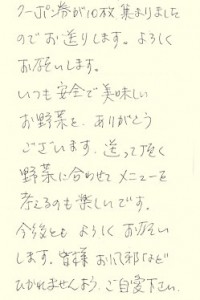 クーポン券が10枚集まりました
のでお送りします。よろしく
お願いします。
いつも安全で美味しい
お野菜を、ありがとう
ございます。送って頂く
野菜に合わせてメニューを
考えるのも楽しいです。
今後とも よろしくお願い
します。皆様 お風邪など
ひかれませんよう、ご自愛下さい。